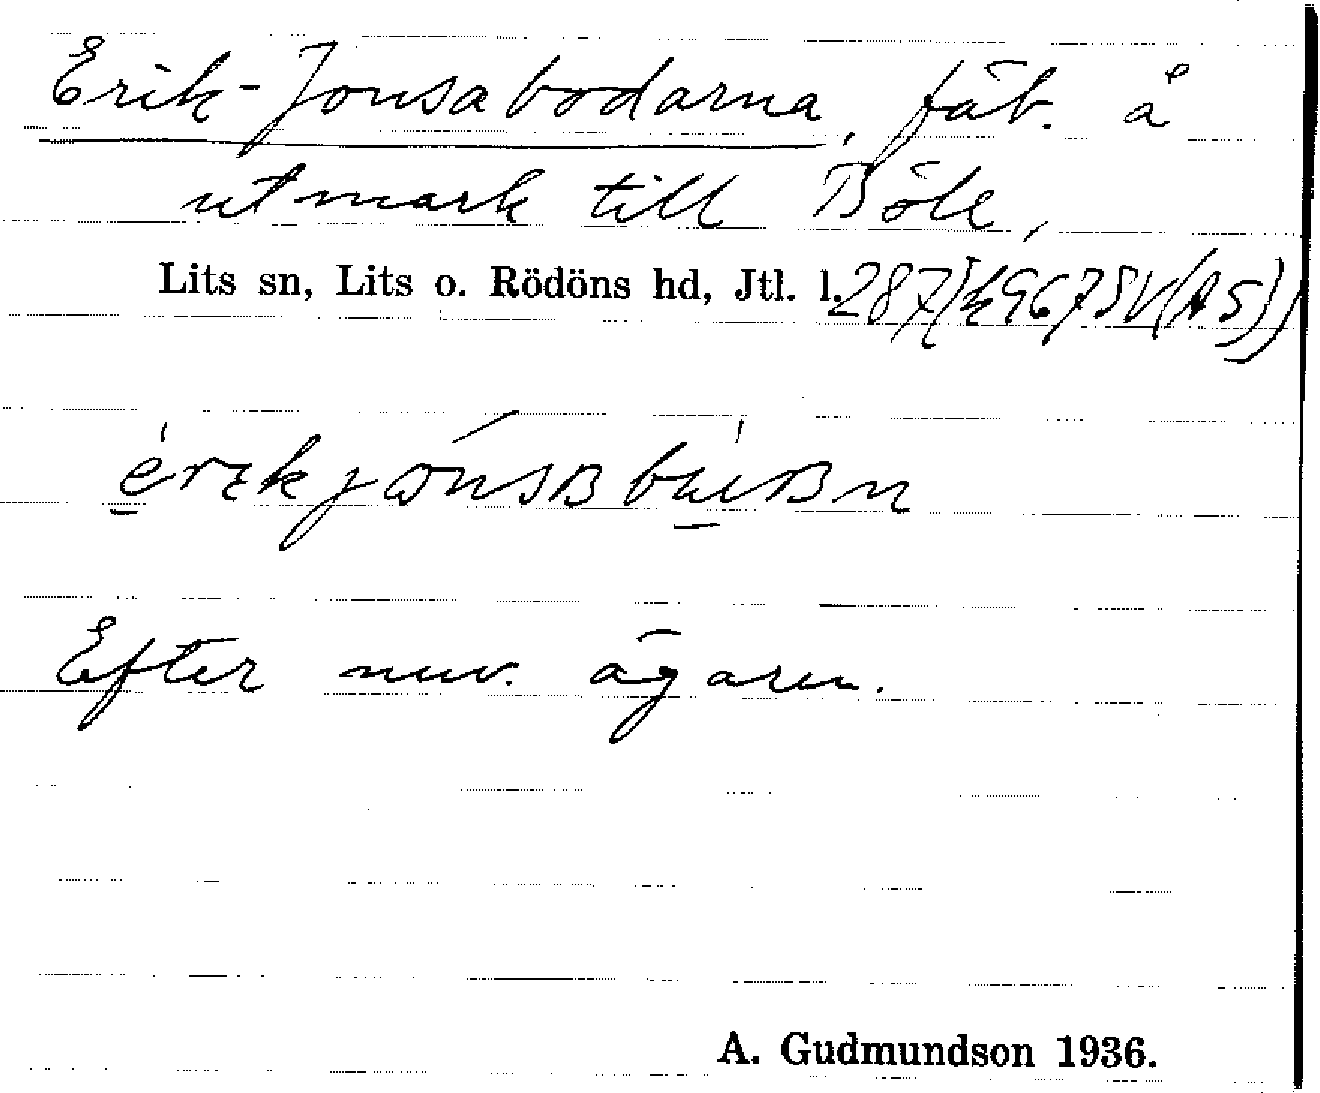 Erik-Jonsabodarna, fäb. å
utmark till Böle,
Lits sn, Lits o. Rödöns hd, Jtl. l.
Efter nuv. ägaren.
A. Gudmundson 1936.